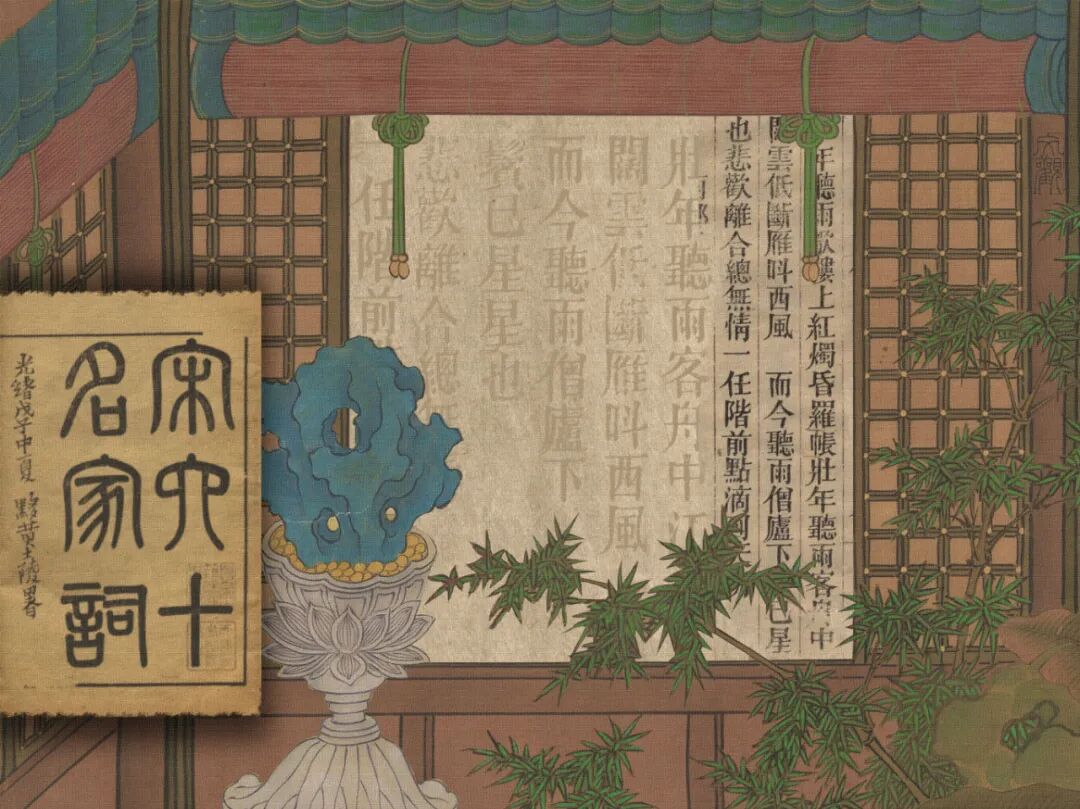 年聽雨歌樓上紅燭昏羅帳壯年聽雨客舟中
闊雲低斷雁呌西風 而今聽雨僧廬下 已星
也悲歡離合總無情一任階前點滴到
壯年聽雨客舟中江
闊雲低斷雁呌西風
而今聽雨僧廬下
鬢已星星也
悲歡離合總
一任階前
宋六十
名家詞
光緒戊子中夏 黟黃士陵署